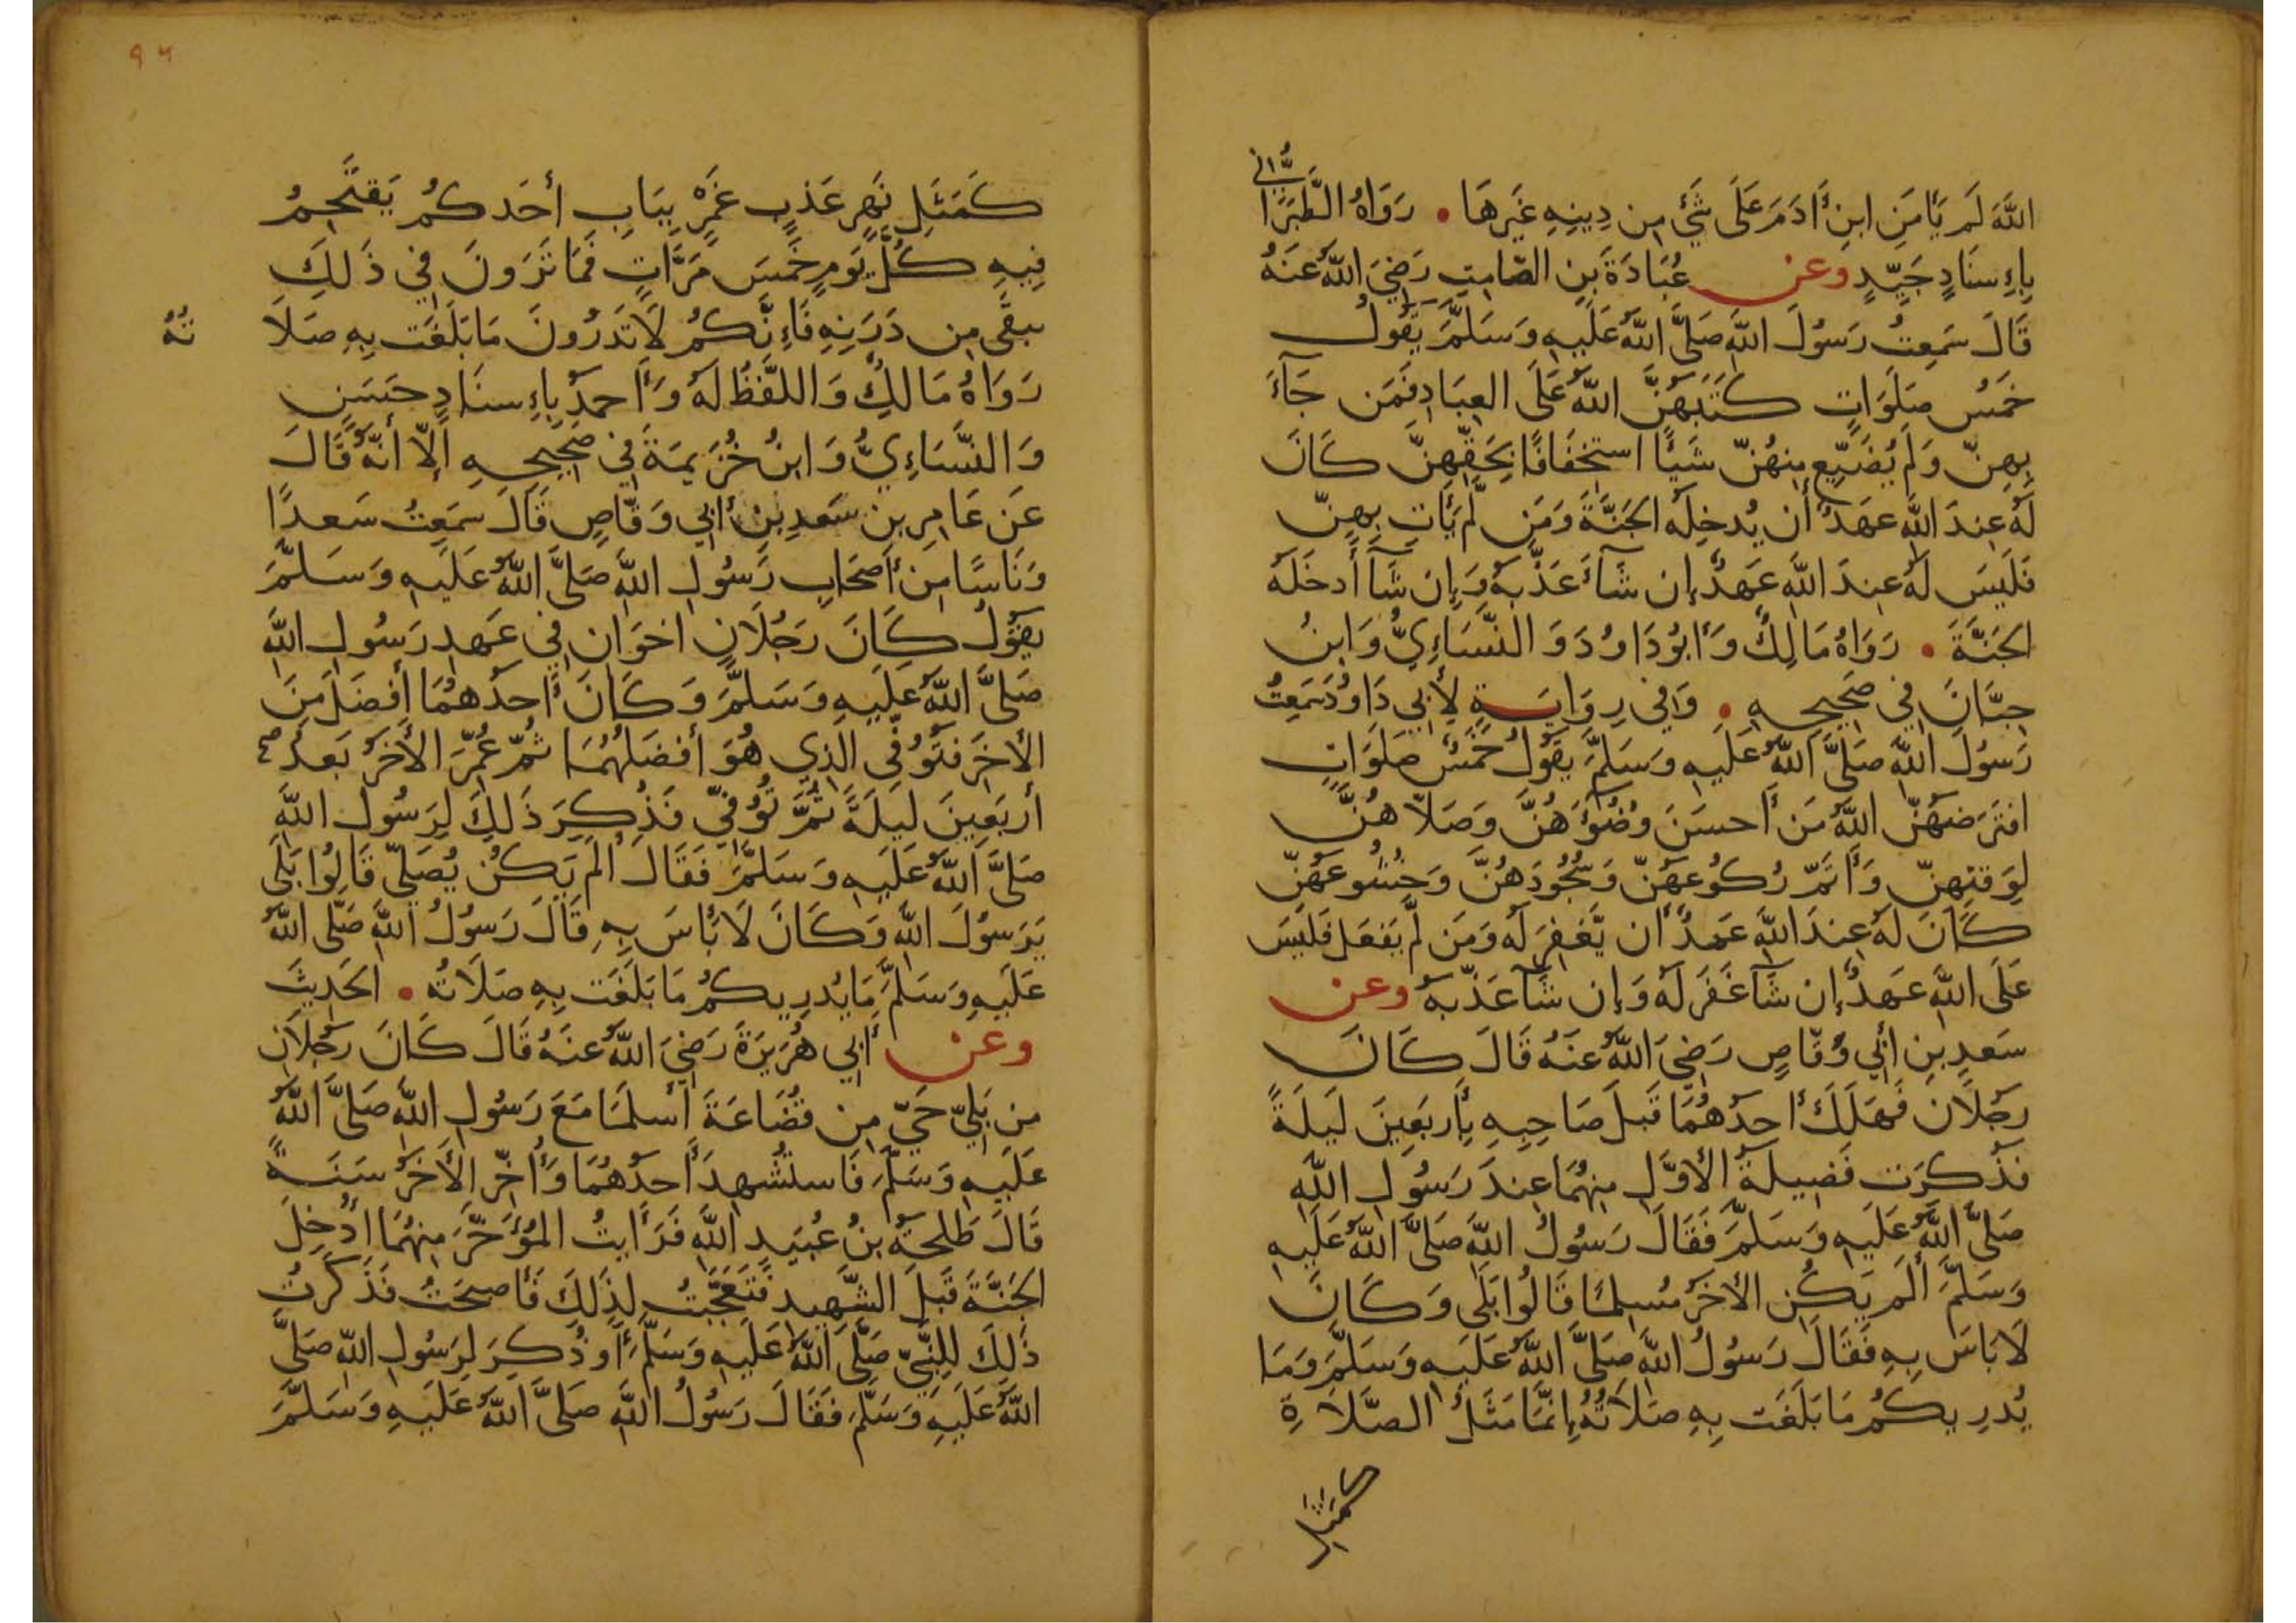 اللَّهَ لَم يَأمَنِ ابنَ أَدَمَ عَلَى شَيْءٍ مِن دِينِهِ غَيرَهَا • رَوَاهُ الطَّبَرَانِي
بِإِسنَادٍ جَيِّدٍ وعن عُبَادَةَ بنِ الصَّامِتِ رَضِيَ اللَّهُ عَنهُ
قَالَ سَمِعتُ رَسُولَ اللَّهِ صَلَّى اللَّهُ عَلَيهِ وَسَلَّمَ يَقُولُ
خَمسُ صَلَوَاتٍ كَتَبَهُنَّ اللَّهُ عَلَى العِبَادِ فَمَن جَآءَ
بِهِنَّ وَلَم يُضَيِّع مِنهُنَّ شَيئًا استِخفَافًا بِحَقِّهِنَّ كَانَ
لَهُ عِندَ اللَّهِ عَهدٌ أَن يُدخِلَهُ الجَنَّةَ وَمَن لَّم يَأتِ بِهِنَّ
فَلَيسَ لَهُ عِندَ اللَّهِ عَهدٌ إِن شَآءَ عَذَّبَهُ وَإِن شَآ أَدخَلَهُ
الجَنَّةَ • رَوَاهُ مَالِكٌ وَأَبُو دَاوُدَ وَالنَّسَاءِيُّ وَابنُ
حِبَّانَ فِي صَحِيحِهِ • وَفِي رِوَايَةٍ لِأَبِي دَاوُدَ سَمِعتُ
رَسُولَ اللَّهِ صَلَّى اللَّهُ عَلَيهِ وَسَلَّمَ يَقُولُ خَمسُ صَلَوَاتٍ
افتَرَضَهُنَّ اللَّهُ مَن أَحسَنَ وُضُوءَهُنَّ وَصَلَّاهُنَّ
لِوَقتِهِنَّ وَأَتَمَّ رُكُوعَهُنَّ وَسُجُودَهُنَّ وَخُشُوعَهُنَّ
كَانَ لَهُ عِندَ اللَّهِ عَهدٌ أَن يَّغفِرَ لَهُ وَمَن لَّم يَفعَل فَلَيسَ
عَلَى اللَّهِ عَهدٌ إِن شَآ غَفَرَ لَهُ وَإِن شَآ عَذَّبَهُ وعن
سَعدِ بنِ أَبِي وَقَّاصٍ رَضِيَ اللَّهُ عَنهُ قَالَ كَانَ
رَجُلَانِ فَهَلَكَ أَحَدُهُمَا قَبلَ صَاحِبِهِ بِأَربَعِينَ لَيلَةً
فَذُكِرَت فَضِيلَةُ الأَوَّلِ مِنهُمَا عِندَ رَسُولِ اللَّهِ
صَلَّى اللَّهُ عَلَيهِ وَسَلَّمَ فَقَالَ رَسُولُ اللَّهِ صَلَّى اللَّهُ عَلَيهِ
وَسَلَّمَ أَلَم يَكُنِ الأَخَرُ مُسلِمًا قَالُوا بَلَى وَكَانَ
لَا بَاسَ بِهِ فَقَالَ رَسُولُ اللَّهِ صَلَّى اللَّهُ عَلَيهِ وَسَلَّمَ وَمَا
يُدرِيكُم مَا بَلَغَت بِهِ صَلَاتُهُ إِنَّمَا مَثَلُ الصَّلَاةِ
كمثل
٩٦
كَمَثَلِ نَهرٍ عَذبٍ غَمرٍ بِبَابِ أَحَدِكُم يَقتَحِمُ
فِيهِ كُلَّ يَومٍ خَمسَ مَرَّاتٍ فَمَا تَرَونَ فِي ذَلِكَ
يبقَى مِن دَرَنِهِ فَإِنَّكُم لَا تَدرُونَ مَا بَلَغَت بِهِ صَلَا
تُهُ
رَوَاهُ مَالِكٌ وَاللَّفظُ لَهُ وَأَحمَدُ بِإِسنَادٍ حَسَنٍ
وَالنَّسَاءِيُّ وَابنُ خُزَيمَةَ فِي صَحِيحِهِ إِلَّا أَنَّهُ قَالَ
عَن عَامِرِ بنِ سَعدِ بنِ أَبِي وَقَّاصٍ قَالَ سَمِعتُ سَعدًا
وَنَاسًا مِن أَصحَابِ رَسُولِ اللَّهِ صَلَّى اللَّهُ عَلَيهِ وَسَلَّمَ
يَقُولُ كَانَ رَجُلَانِ اخَوَانِ فِي عَهدِ رَسُولِ اللَّهِ
صَلَّى اللَّهُ عَلَيهِ وَسَلَّمَ وَكَانَ أَحَدُهُمَا أَفضَلَ مِنَ
الأَخَرِ فَتُوُفِّيَ الَّذِي هُوَ أَفضَلُهُمَا ثُمَّ عُمِّرَ الأَخَرُ بَعدَهُ
أَربَعِينَ لَيلَةً ثُمَّ تُوُفِّيَ فَذُكِرَ ذَلِكَ لِرَسُولِ اللَّهِ
صَلَّى اللَّهُ عَلَيهِ وَسَلَّمَ فَقَالَ أَلَم يَكُن يُصَلِّي قَالُوا بَلَى
يَرَسُولَ اللَّهِ وَكَانَ لَا بَأسَ بِهِ قَالَ رَسُولُ اللَّهِ صَلَّى اللَّهُ
عَلَيهِ وَسَلَّمَ مَا يُدرِيكُم مَا بَلَغَت بِهِ صَلَاتُهُ • الحَدِيثَ
وعن أَبِي هُرَيرَةَ رَضِيَ اللَّهُ عَنهُ قَالَ كَانَ رَجُلَانِ
مِن بَلِيٍّ حَيٍّ مِن قُضَاعَةَ أَسلَمَا مَعَ رَسُولِ اللَّهِ صَلَّى اللَّهُ
عَلَيهِ وَسَلَّمَ فَاستُشهِدَ أَحَدُهُمَا وَأُخِّرَ الأَخَرُ سَنَةً
قَالَ طَلحَةُ بنُ عُبَيدِ اللَّهِ فَرَأَيتُ المُؤَخَّرَ مِنهُمَا أُدخِلَ
الجَنَّةَ قَبلَ الشَّهِيدِ فَتَعَجَّبتُ لِذَلِكَ فَأَصبَحتُ فَذَكَرتُ
ذَلِكَ لِلنَّبِيِّ صَلَّى اللَّهُ عَلَيهِ وَسَلَّمَ أَو ذُكِرَ لِرَسُولِ اللَّهِ صَلَّى
اللَّهُ عَلَيهِ وَسَلَّمَ فَقَالَ رَسُولُ اللَّهِ صَلَّى اللَّهُ عَلَيهِ وَسَلَّمَ